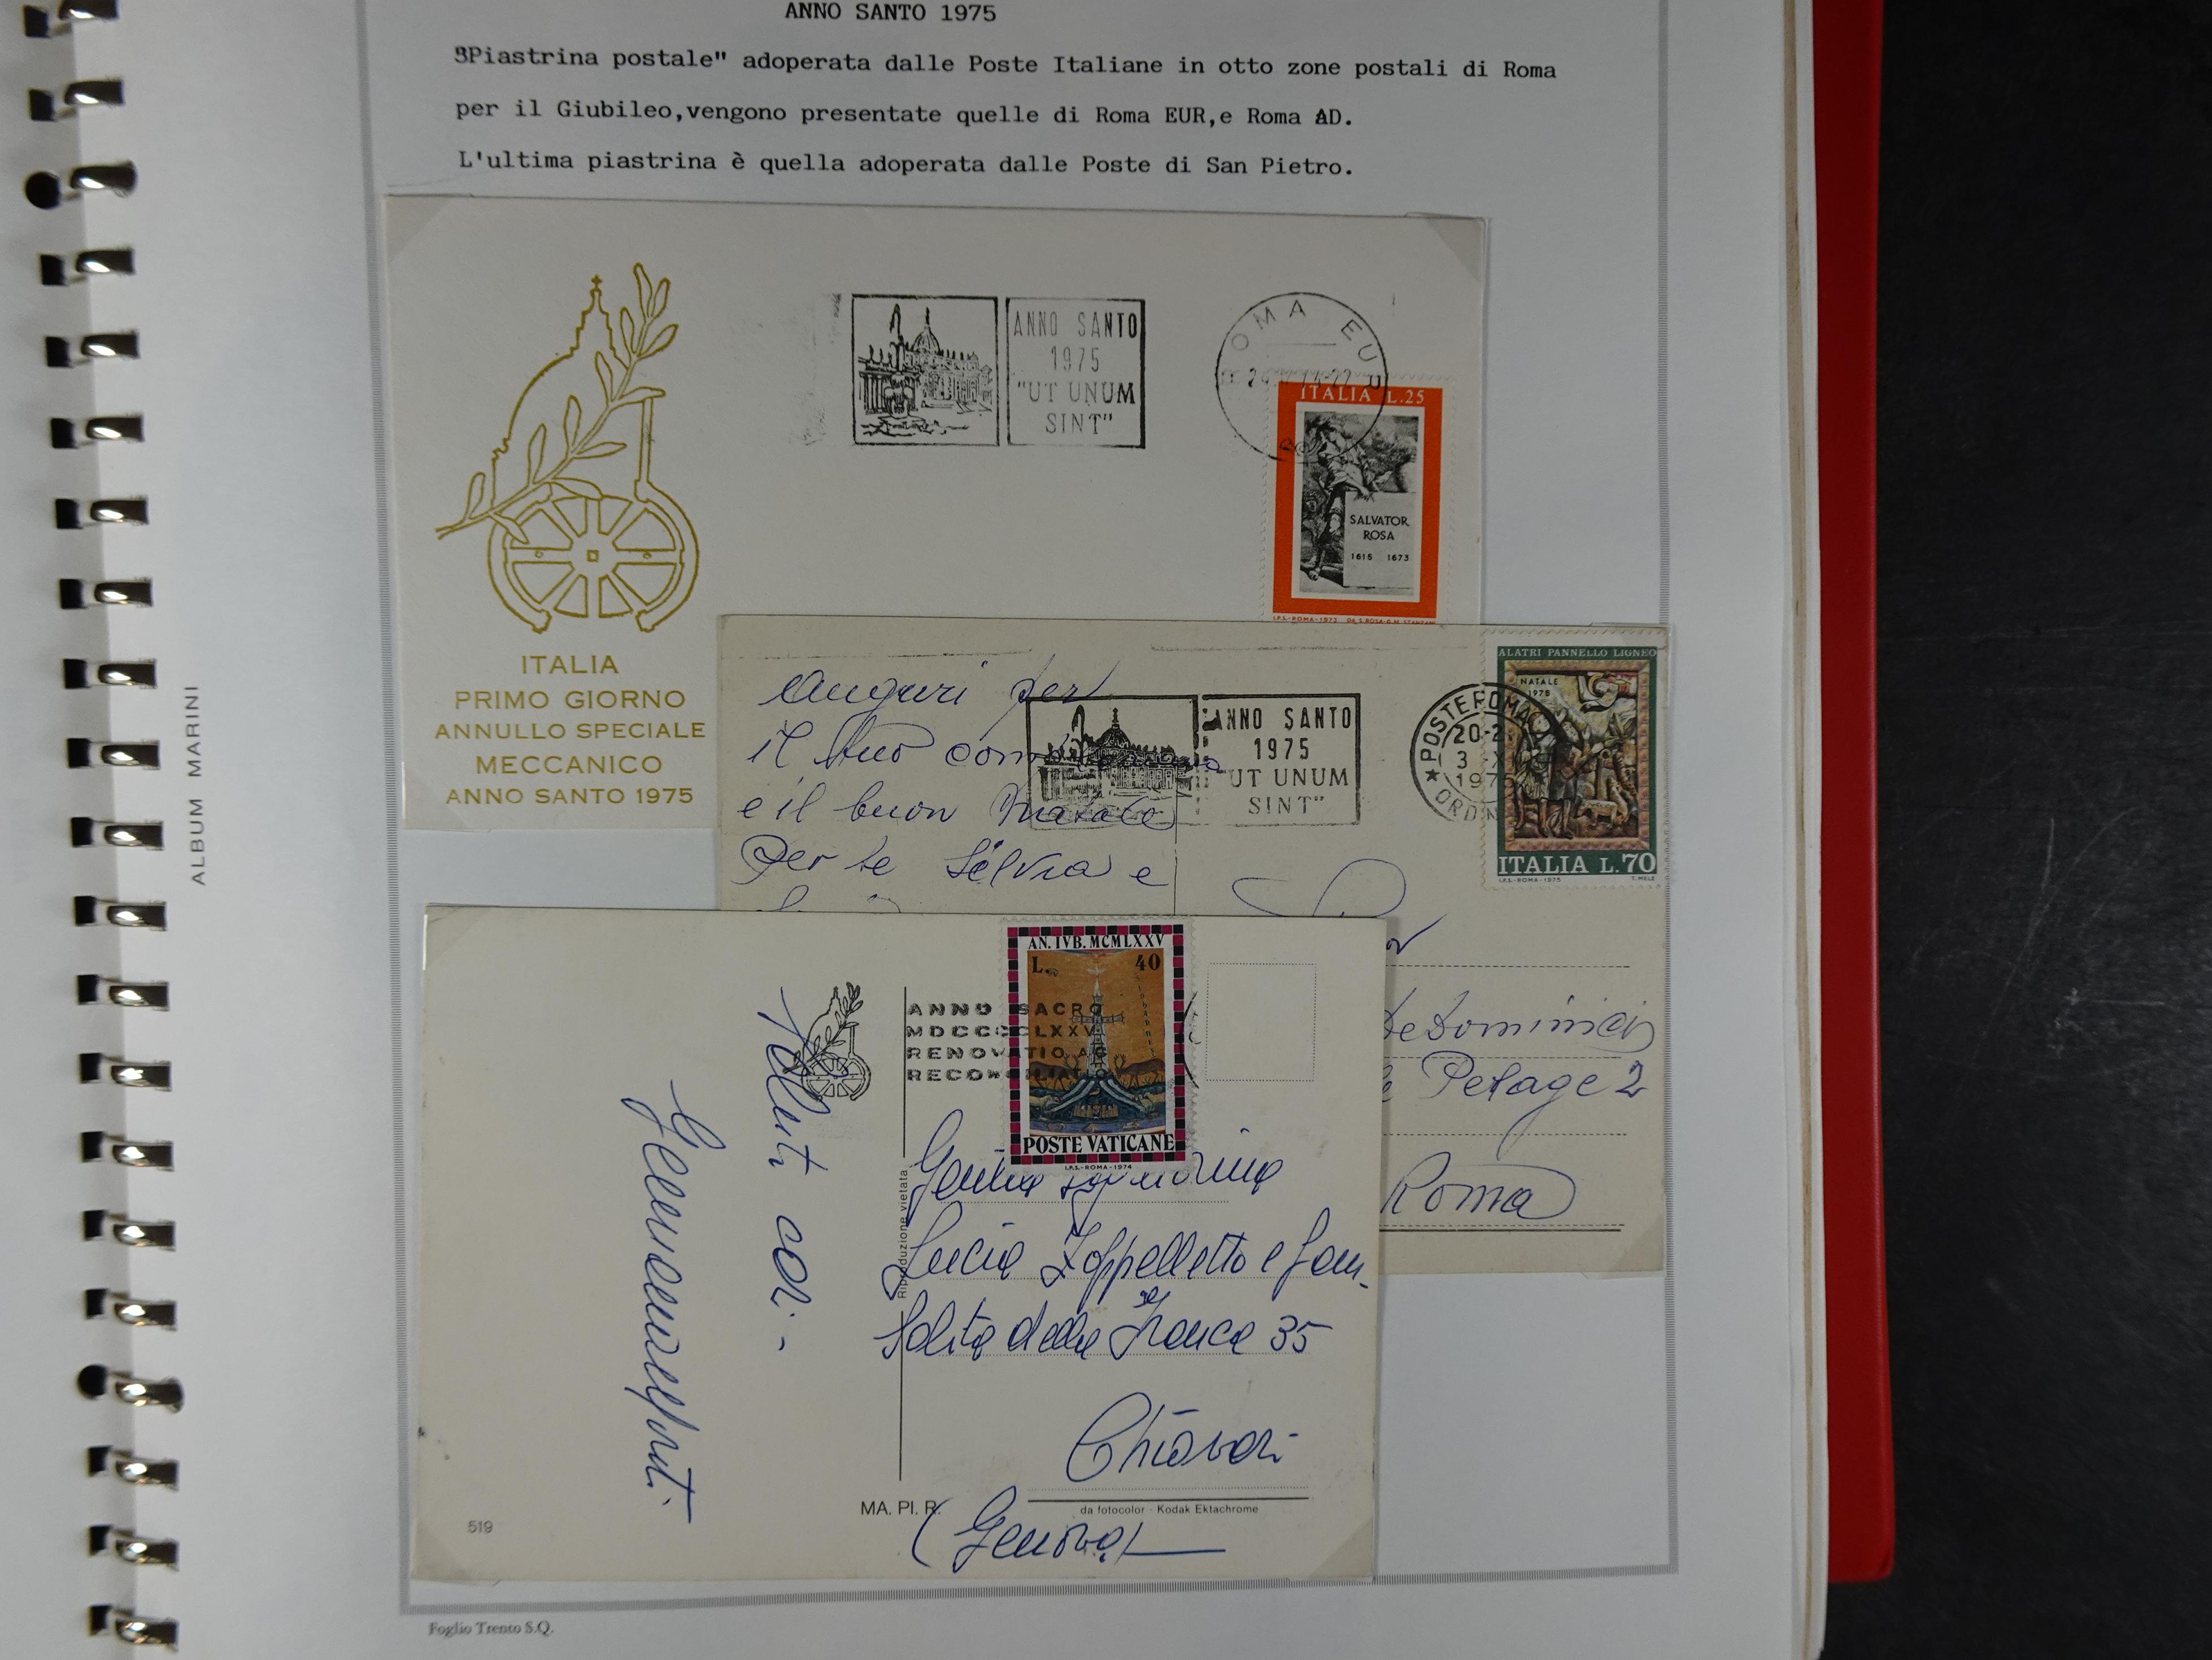 ANNO SANTO 1975
"Piastrina postale" adoperata dalle Poste Italiane in otto zone postali di Roma
per il Giubileo,vengono presentate quelle di Roma EUR,e Roma AD.
L'ultima piastrina è quella adoperata dalle Poste di San Pietro.
ANNO SANTO
1975
"UT UNUM
SINT"
ROMA EUR
ITALIA L.25
SALVATOR
ROSA
1615 1673
I.P.S.-ROMA-1973
ITALIA
PRIMO GIORNO
ANNULLO SPECIALE
MECCANICO
ANNO SANTO 1975
ALBUM MARINI
auguri per
il tuo
e il buon Natale
Per te Silvia e
ANNO SANTO
1975
UT UNUM
SINT"
POSTE ROMA
3
1975
ORD
ALATRI PANNELLO LIGNEO
NATALE
1975
ITALIA L.70
I.P.S.-ROMA-1975 T. MELE
DeDominicis
Pelage 2
Roma
AN. IVB. MCMLXXV
L. 40
POSTE VATICANE
I.P.S.-ROMA-1974
ANNO SACRO
RENOVATIO AC
Saluti cari -
Riproduzione vietata
Gentile signorina
Lucia Zoppelletto e fam.
Salita della Franca 35
Chiavari
(Genova)
MA. PI. R.
da fotocolor - Kodak Ektachrome
519
Foglio Trento S.Q.